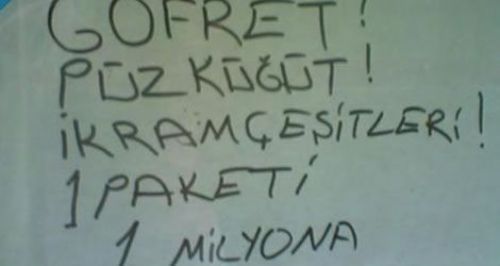 GOFRET!
PÜZKÜĞÜT!
İKRAMÇEŞİTLERİ!
1 PAKETİ
1 MİLYONA